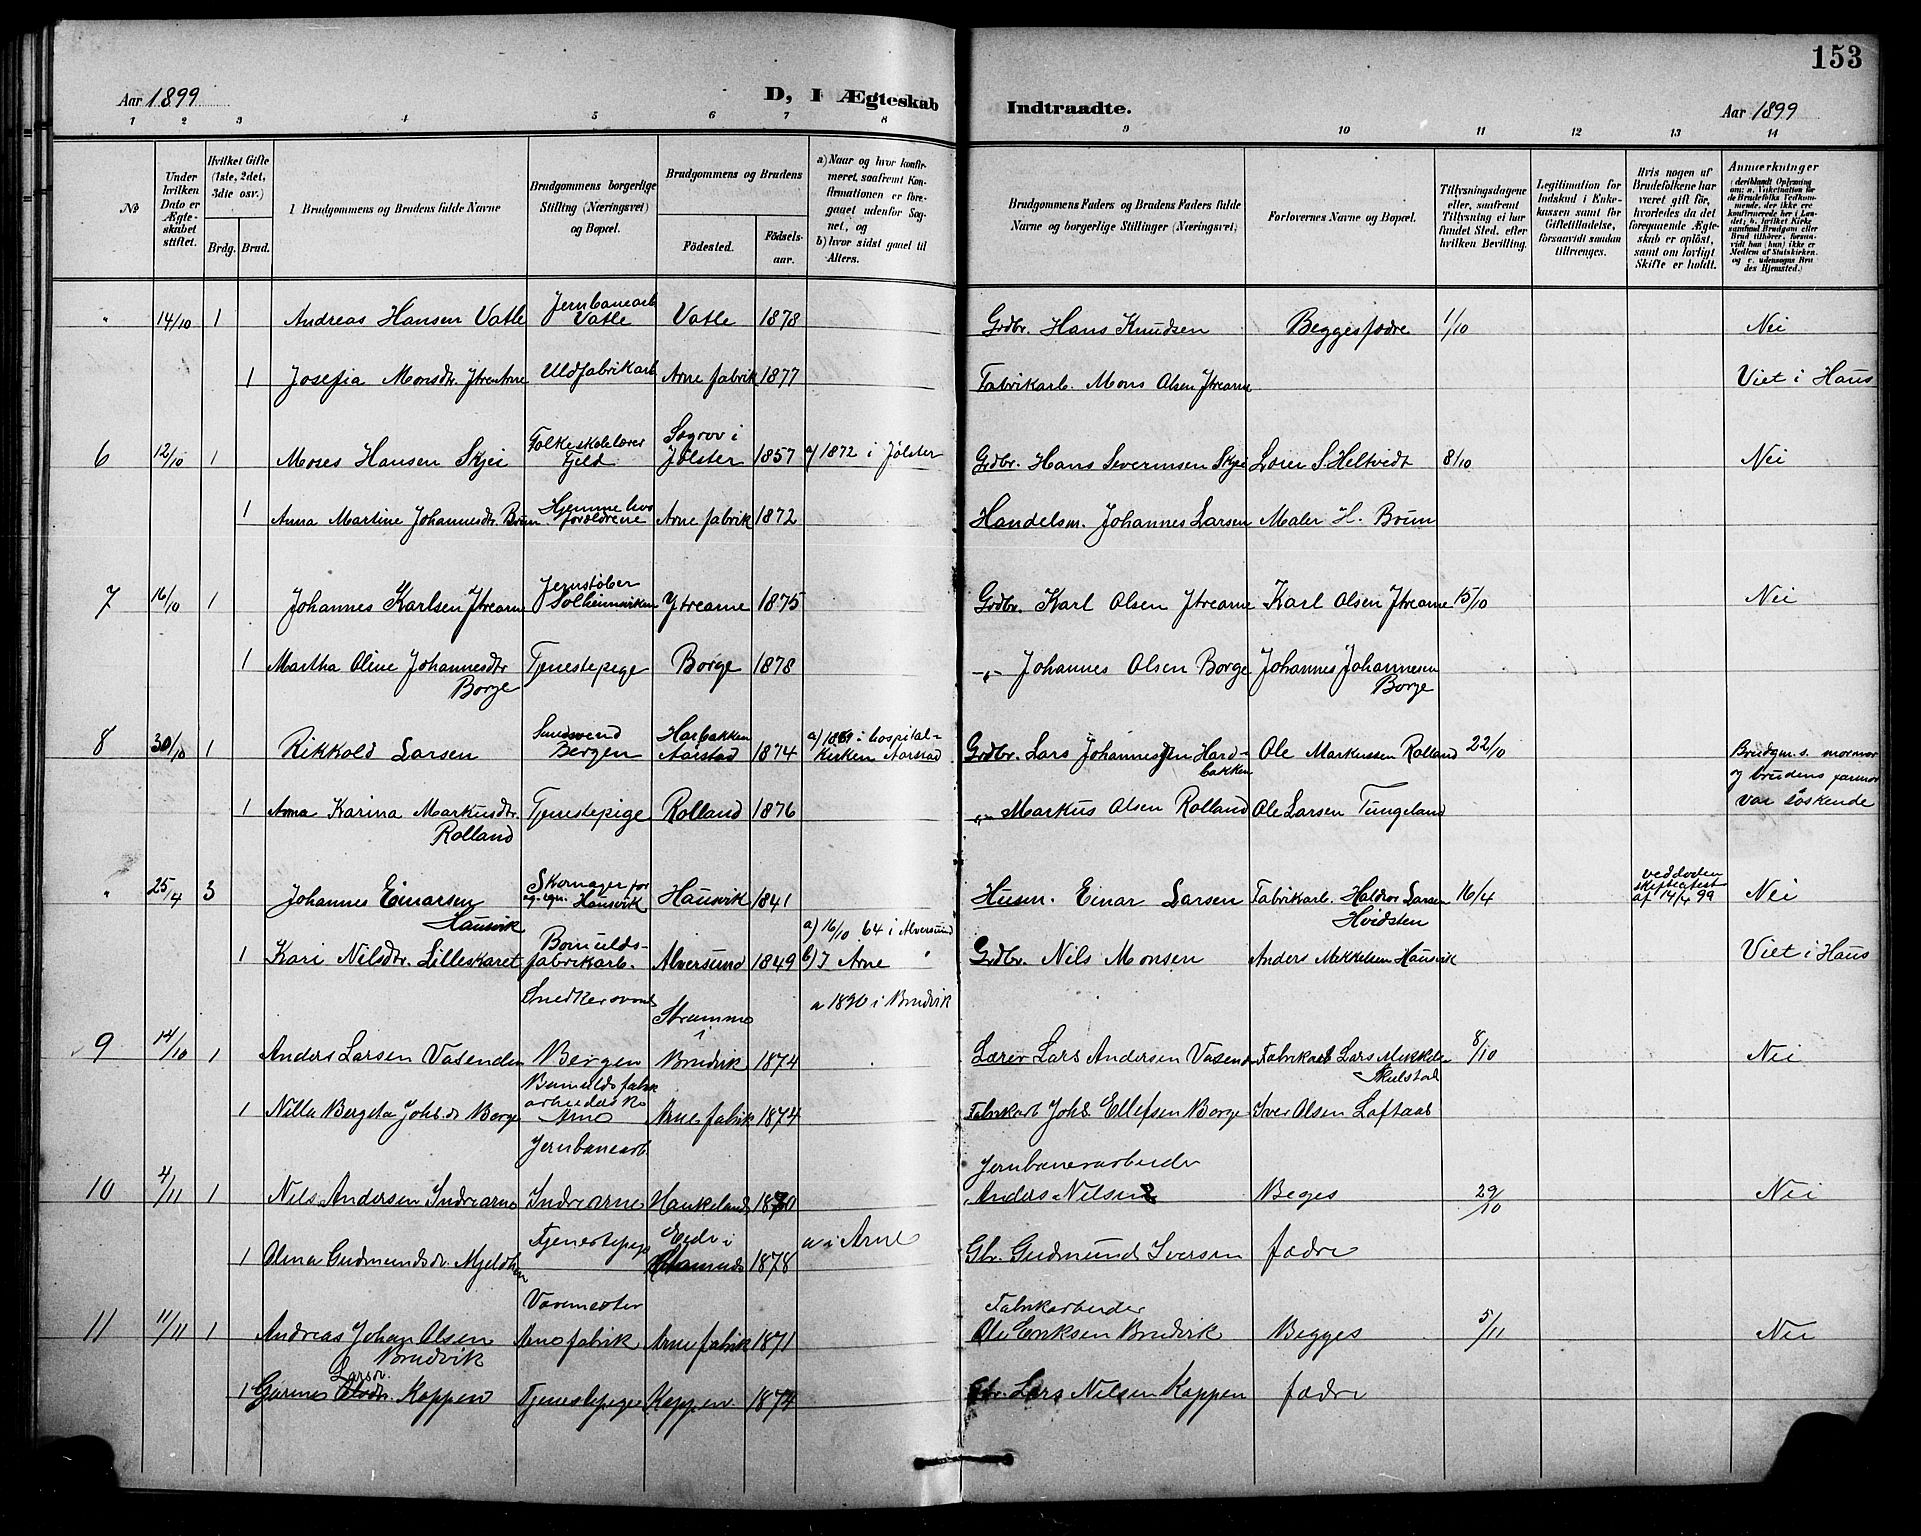 153
Aar 1899
D, I Ægteskab Indtraadte.
Aar 1899
1 2 3 4 5 6 7 8 9 10 11 12 13 14
No
Under hvilken Dato er Ægteskabet stiftet.
Hvilket Gifte (1ste, 2det, 3die osv.)
Brdg. Brud.
1 Brudgommens og Brudens fulde Navne
Brudgommens borgerlige Stilling (Næringsvei) og Bopæl.
Brudgommens og Brudens
Fødested. Fødselsaar.
a) Naar og hvor konfirmeret, saafremt Konfirmationen er foregaaet udenfor Sognet, og
b) hvor sidst gaaet til Alters.
Brudgommens Faders og Brudens Faders fulde Navne og borgerlige Stillinger (Næringsvei)
Forlovernes Navne og Bopæl.
Tillysningsdagene eller, saafremt Tillysning ei har fundet Sted, efter hvilken Bevilling.
Legitimation for Indskud i Enkekassen samt for Giftetilladelse, forsaavidt saadan tiltrænges.
Hvis nogen af Brudefolkene har været gift før, hvorledes da det foregaaende Ægteskab er opløst, samt om lovligt Skifte er holdt.
Anmærkninger
" 14/10 1 Andreas Hansen Vatle Jernbanearb Vatle Vatle 1878 Grdbr. Hans Knudsen Begges fædre 1/10 Nei
1 Josefia Monsdtr. Ytrearne Uldfabrikarb Arne fabrik 1877 Fabrikarb. Mons Olsen Ytrearne Viet i Haus
6 12/10 1 Moses Hansen Skjei Folkeskolelærer Fjeld Søgrov i Jølster 1857 a) 1872 i Jølster Grdbr. Hans Severinsen Skjei Lærer S Heltvidt 8/10 Nei
1 Anna Martine Johannesdtr. Brun Hjemme hos forældrene Arne fabrik 1872 Handelsm. Johannes Larsen Maler H. Brun
7 16/10 1 Johannes Karlsen Ytrearne Jernstøber Solheimsviken Ytrearne 1875 Grdbr. Karl Olsen Ytrearne Karl Olsen Ytrearne 15/10 Nei
1 Martha Oline Johannesdtr Borge Tjenestepige Borge 1878 -"- Johannes Olsen Borge Johannes Johannesen Borge
8 30/10 1 Rikkold Larsen Smedsvend Bergen Harbakken Aarstad 1874 a) 1889 i hospital-Kirken Aarstad Grdbr. Lars Johannessen Hardbakken Ole Markussen Rolland 22/10 Brudgm.s mormor og brudens farmor var søskende
1 Anna Karina Markusdtr. Rolland Tjenestepige Rolland 1876 -"- Markus Olsen Rolland Ole Larsen Tungeland
" 25/4 3 Johannes Einarsen Hausvik Skomager for eg. regn. Hausvik Hausvik 1841 Husm. Einar Larsen Fabrikarb. Haldor Larsen Hvidsten 16/4 ved døden skifteattest af 14/4 99 Nei
1 Kari Nilsdtr. Lilleskaret Bomulds-fabrikarb. Alversund 1849 a) 16/10 64 i Alversund b) I Arne " Grdbr. Nils Monsen Anders Mikkelsen Hausvik Viet i Haus
9 14/10 1 Anders Larsen Vasenden Snedkersvend Bergen Stramme i Bruvik 1874 a 1890 i Bruvik Lærer Lars Andersen Vasend Fabrikarb Lars Mikkelsen Skulstad 8/10 Nei
1 Nilla Bergeta Johs.d. Borge Bomuldsfabrik arbeiderske Arne Arne fabrik 1874 Fabrikarb Johs Ellefsen Borge Iver Olsen Loftaas
10 4/11 1 Nils Andersen Indrearne Jernbanearb. Indrearne Haukeland 1870 Jernbanearbeider Anders Nilsen Beges 29/10 Nei
1 Olina Gudmundsdr. Mjeldheim Tjenestepige Eide i 1878 a i Arne Gbr. Gudmund Iversen fædre
11 11/11 1 Andreas Johan Olsen Bruvik Vævmester Arne fabrik Arne fabrik 1871 Fabrikarbeider Ole Eriksen Bruvik Begges 5/11 Nei
1 Gurine Larsdr. Koppen Tjenestepige Koppen 1874 Gbr. Lars Nilsen Koppen fædre